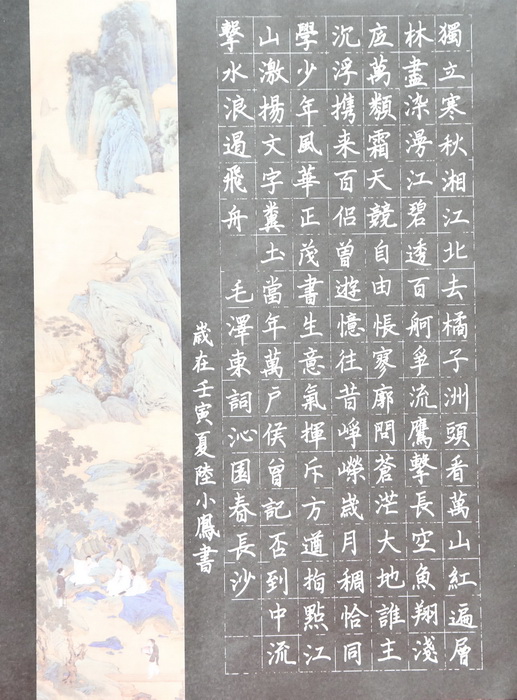 獨立寒秋湘江北去橘子洲頭看萬山紅遍層
林盡染漫江碧透百舸爭流鷹擊長空魚翔淺
底萬類霜天競自由悵寥廓問蒼茫大地誰主
沉浮携来百侣曾遊憶往昔崢嶸歲月稠恰同
學少年風華正茂書生意氣揮斥方遒指點江
山激揚文字糞土當年萬戶侯曾記否到中流
擊水浪遏飛舟 毛澤東詞沁園春長沙
歲在壬寅夏陸小鳳書